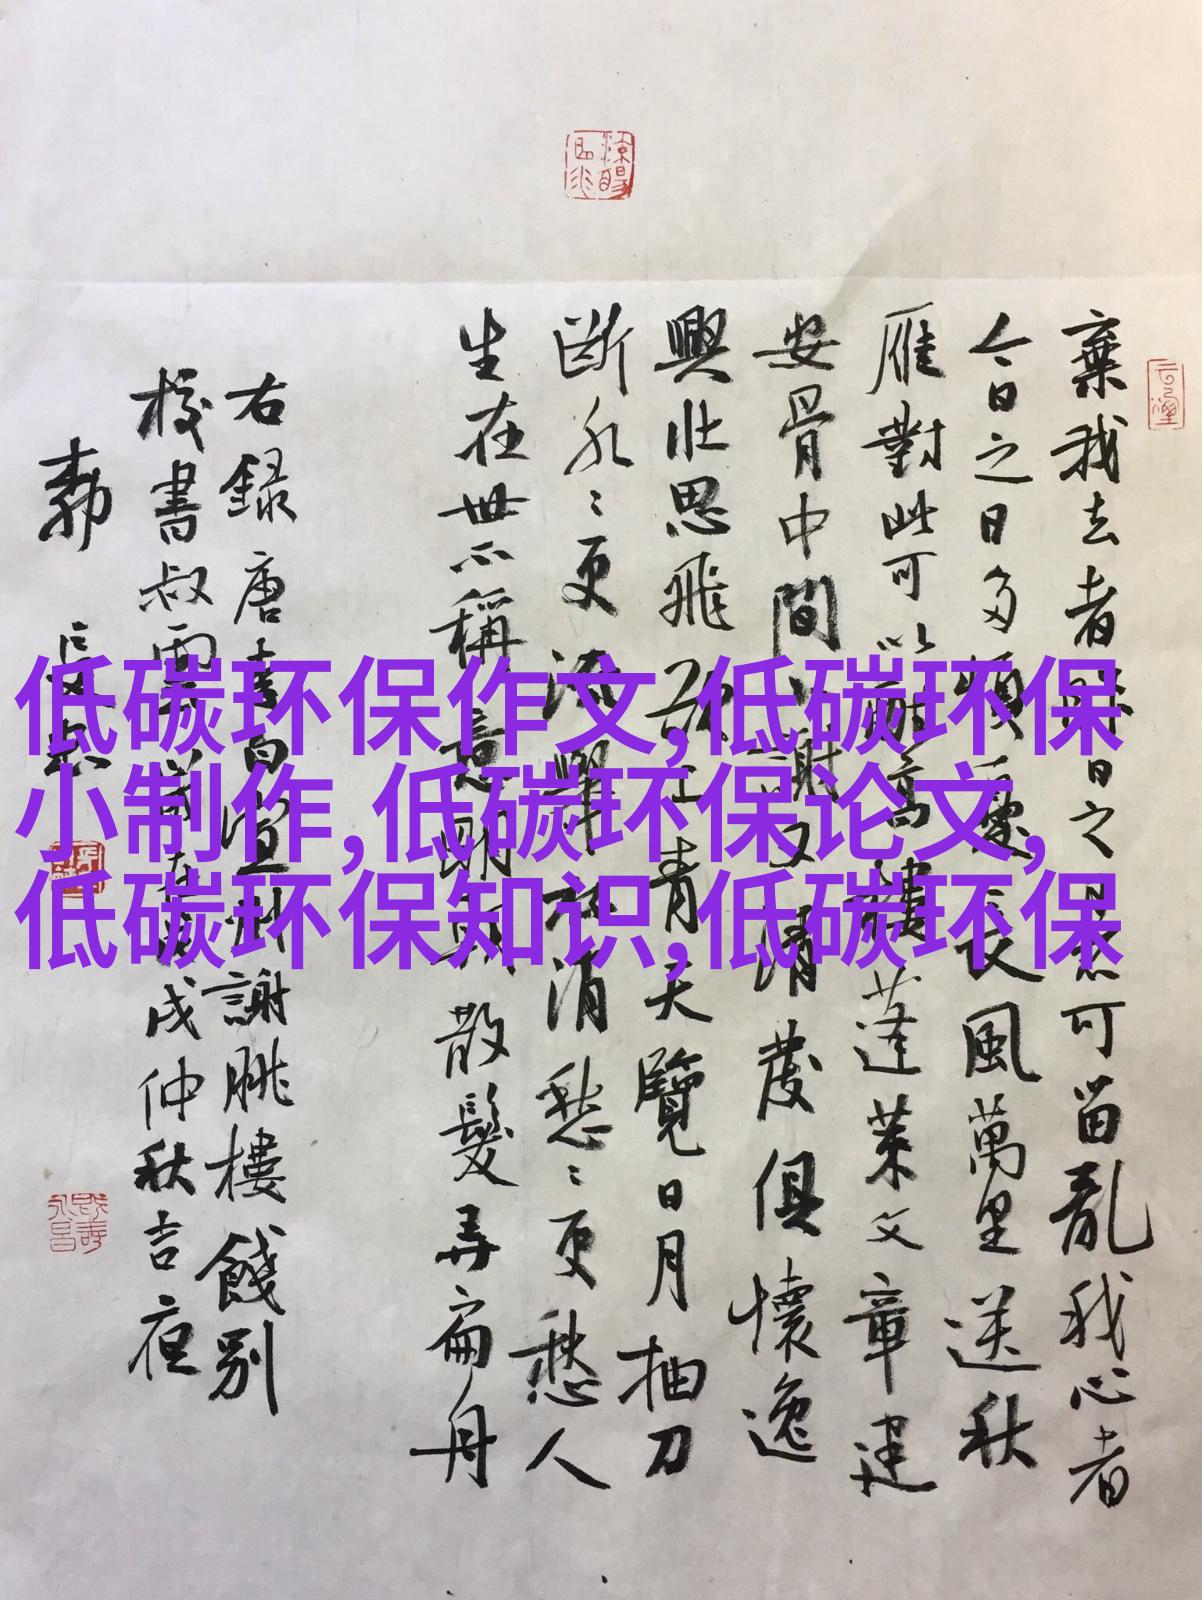 棄我去者昨日之日不可留亂我心者
今日之日多煩憂長風萬里送秋
雁對此可以酣高樓蓬萊文章建
安骨中間小謝又清發俱懷逸
興壯思飛欲上青天覽日月抽刀
断水〻更流舉杯消愁〻更愁人
生在世不稱意明朝散髮弄扁舟
右録唐李白宣州謝朓樓餞別
校書叔雲歲在戊戌仲秋吉夜
低碳环保作文,低碳环保
小制作,低碳环保论文,
低碳环保知识,低碳环保